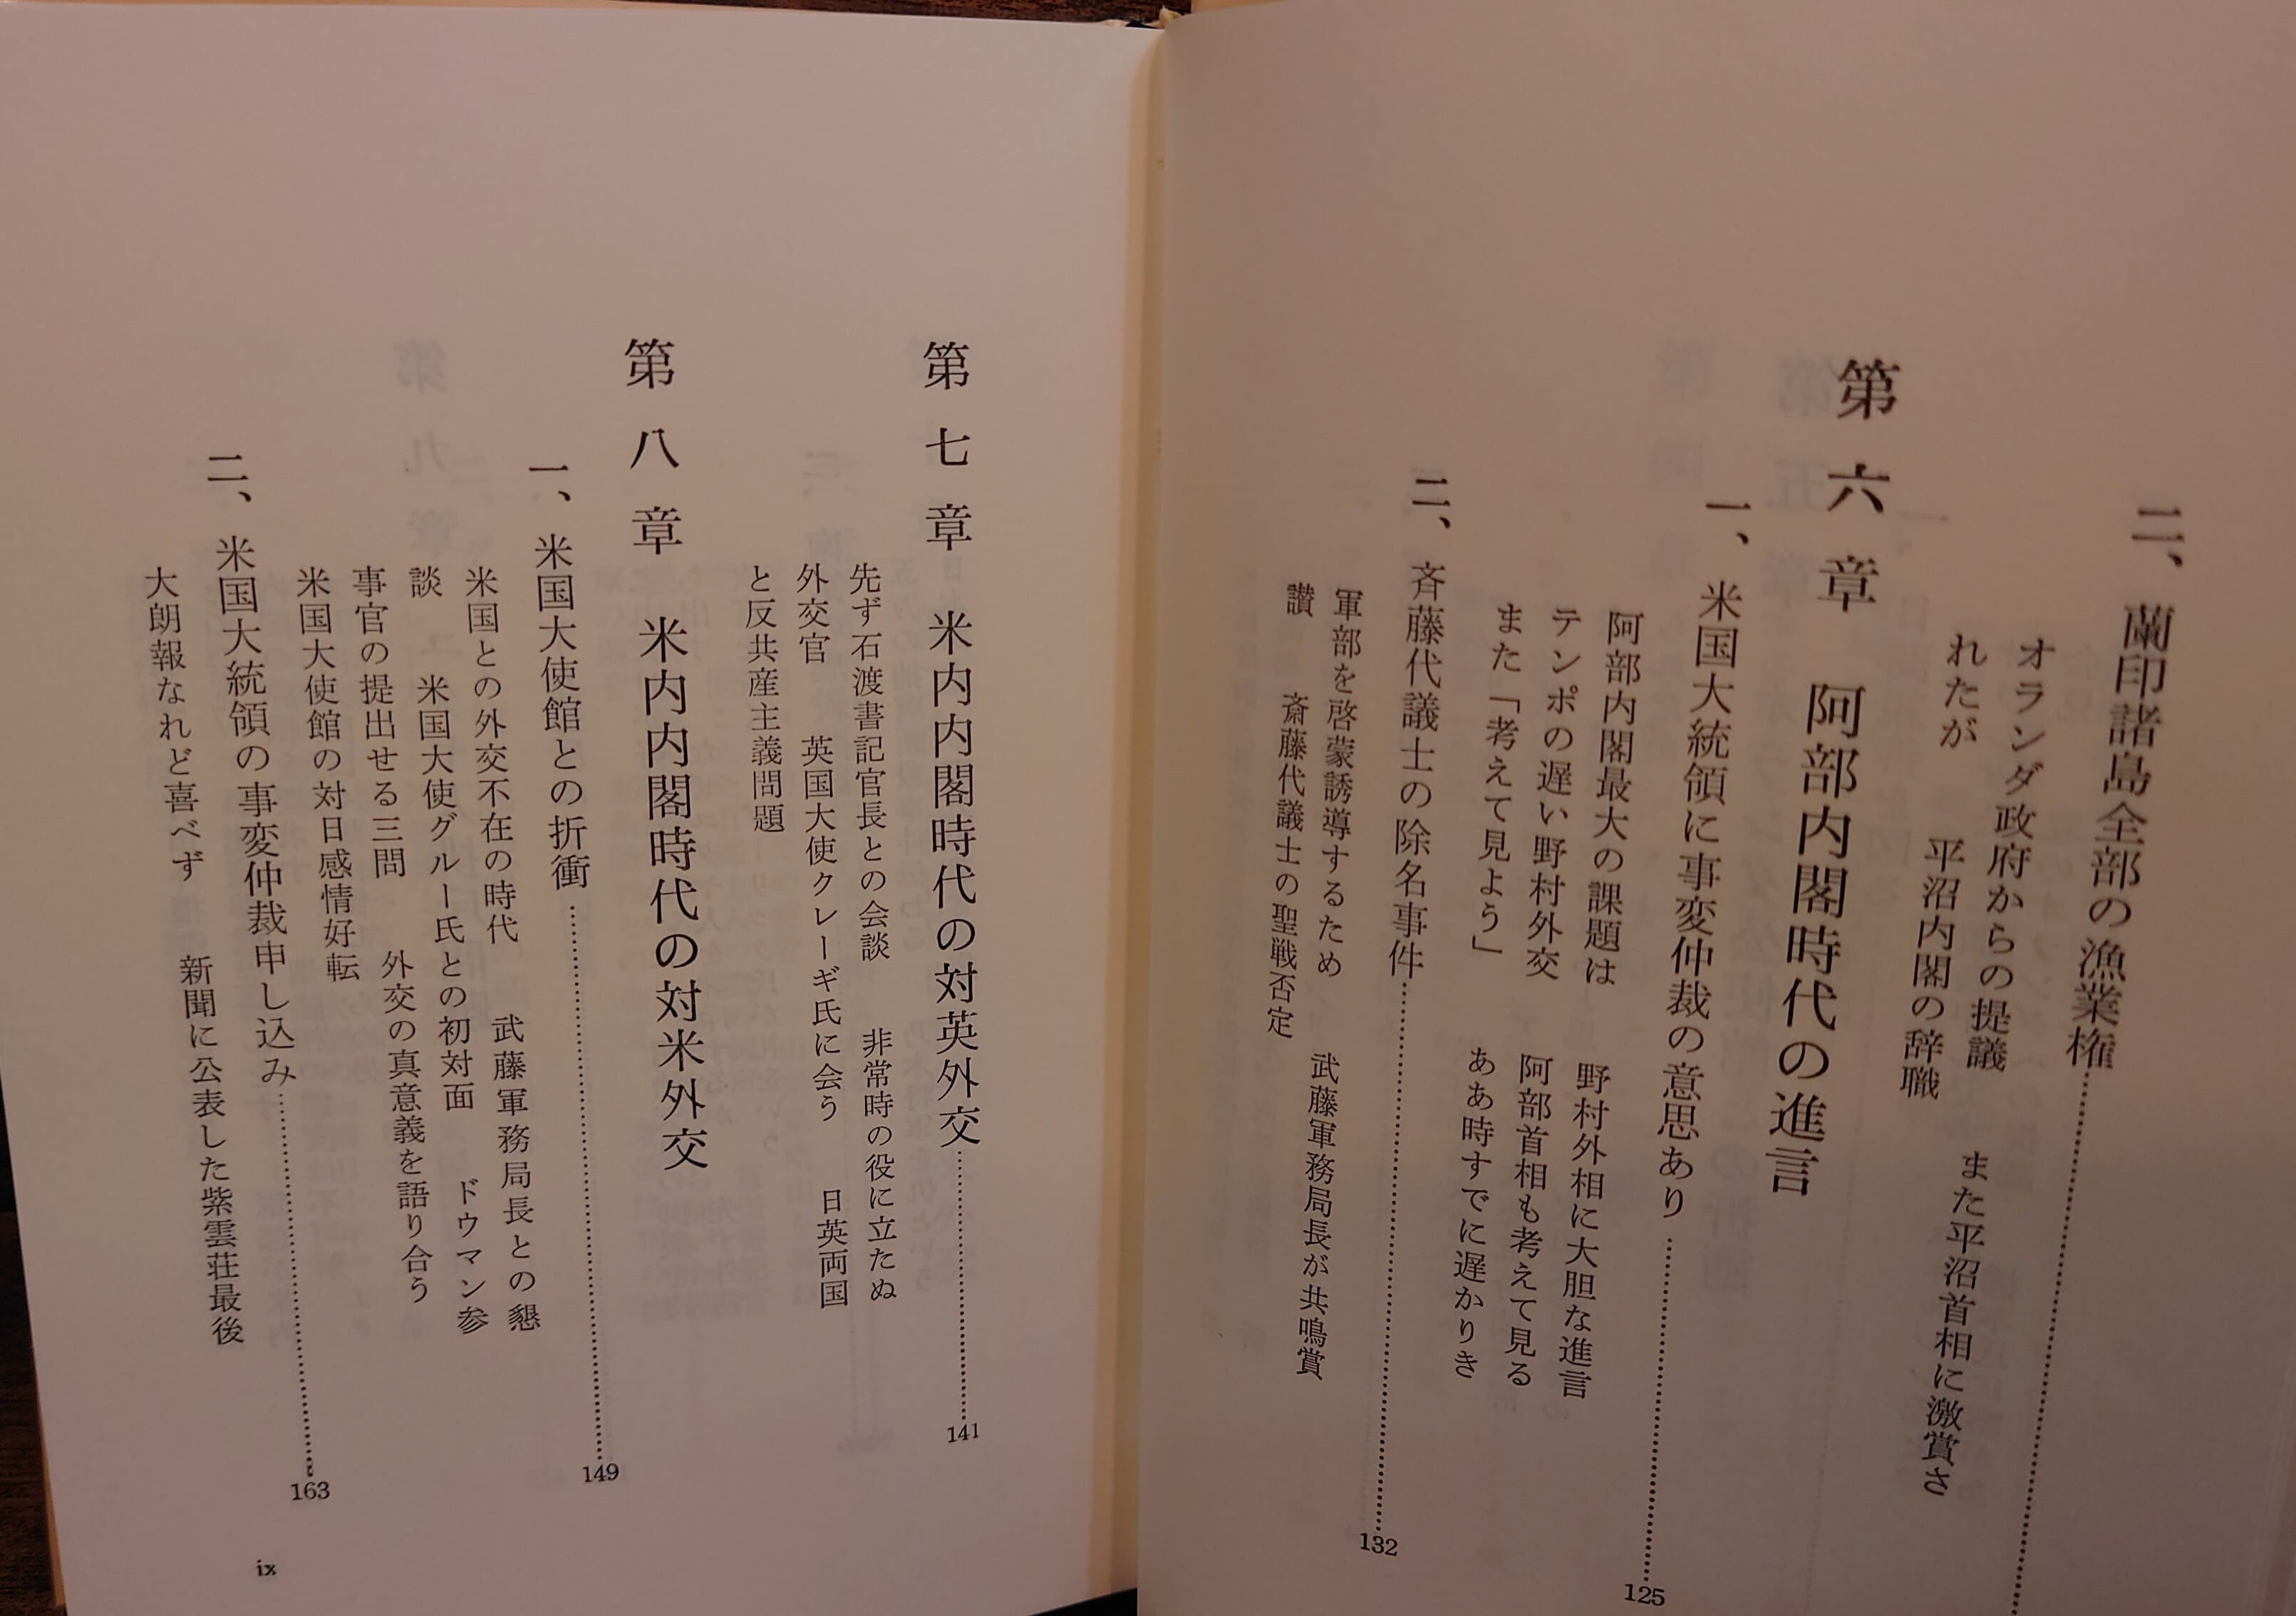 二、蘭印諸島全部の漁業権
オランダ政府からの提議　また平沼首相に激賞さ
れたが　平沼内閣の辞職
第六章　阿部内閣時代の進言
一、米国大統領に事変仲裁の意思あり……………125
阿部内閣最大の課題は　野村外相に大胆な進言
テンポの遅い野村外交　阿部首相も考えて見る
また「考えて見よう」　ああ時すでに遅かりき
二、斉藤代議士の除名事件……………132
軍部を啓蒙誘導するため　武藤軍務局長が共鳴賞
讃　斎藤代議士の聖戦否定
第七章　米内内閣時代の対英外交……………141
先ず石渡書記官長との会談　非常時の役に立たぬ
外交官　英国大使クレーギ氏に会う　日英両国
と反共産主義問題
第八章　米内内閣時代の対米外交
一、米国大使館との折衝……………149
米国との外交不在の時代　武藤軍務局長との懇
談　米国大使グルー氏との初対面　ドウマン参
事官の提出せる三問　外交の真意義を語り合う
米国大使館の対日感情好転
二、米国大統領の事変仲裁申し込み……………163
大朗報なれど喜べず　新聞に公表した紫雲荘最後
ix